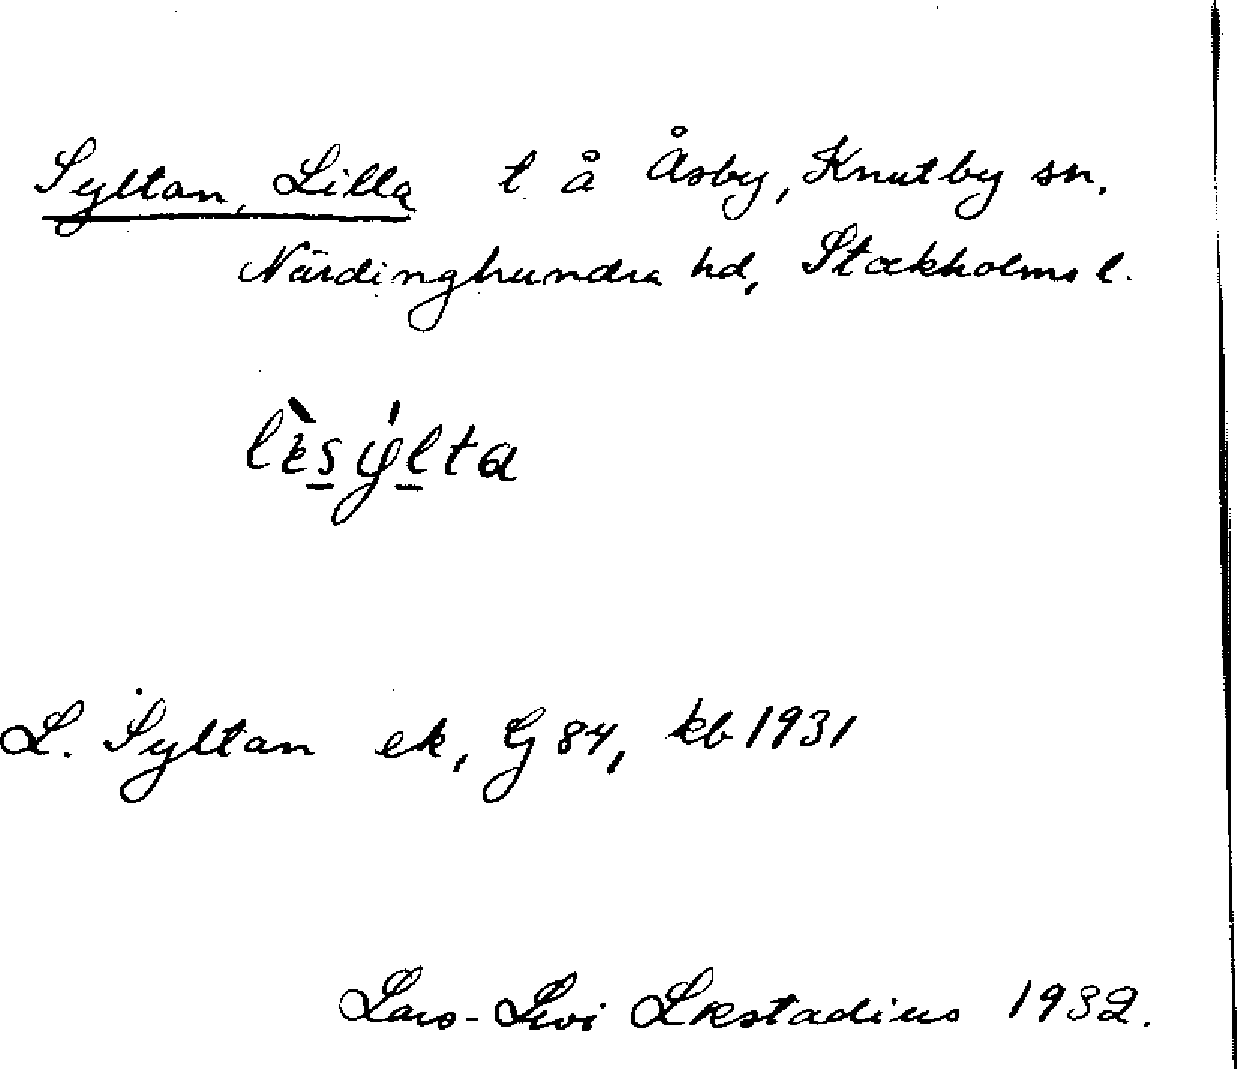 Syltan, Lilla t å Åsby, Knutby sn.
Närdinghundra hd, Stockholms l.
L. Syltan ek, G 84, kb 1931
Lars-Levi Læstadius 1932.